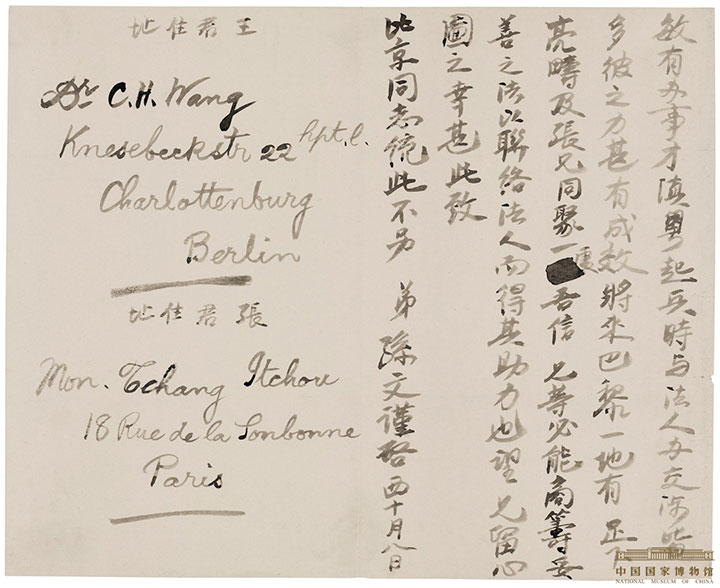 敏有办事才滇粤起兵時与法人办交涉皆
多彼之力甚有成效將来巴黎一地有 足下
亮疇及張兄同聚一處吾信 兄等必能商籌妥
善之法以聯絡法人而得其助力也望 兄留心
圖之幸甚此致
比京同志統此不另 弟 孫文謹啓 西十月八日
王君住址
Dr C.H. Wang
Knesebeckstr 22 hpt. l.
Charlottenburg
Berlin
張君住址
Mon. Tchang Itchou
18 Rue de la Sonbonne
Paris
中国国家博物馆
NATIONAL MUSEUM OF CHINA